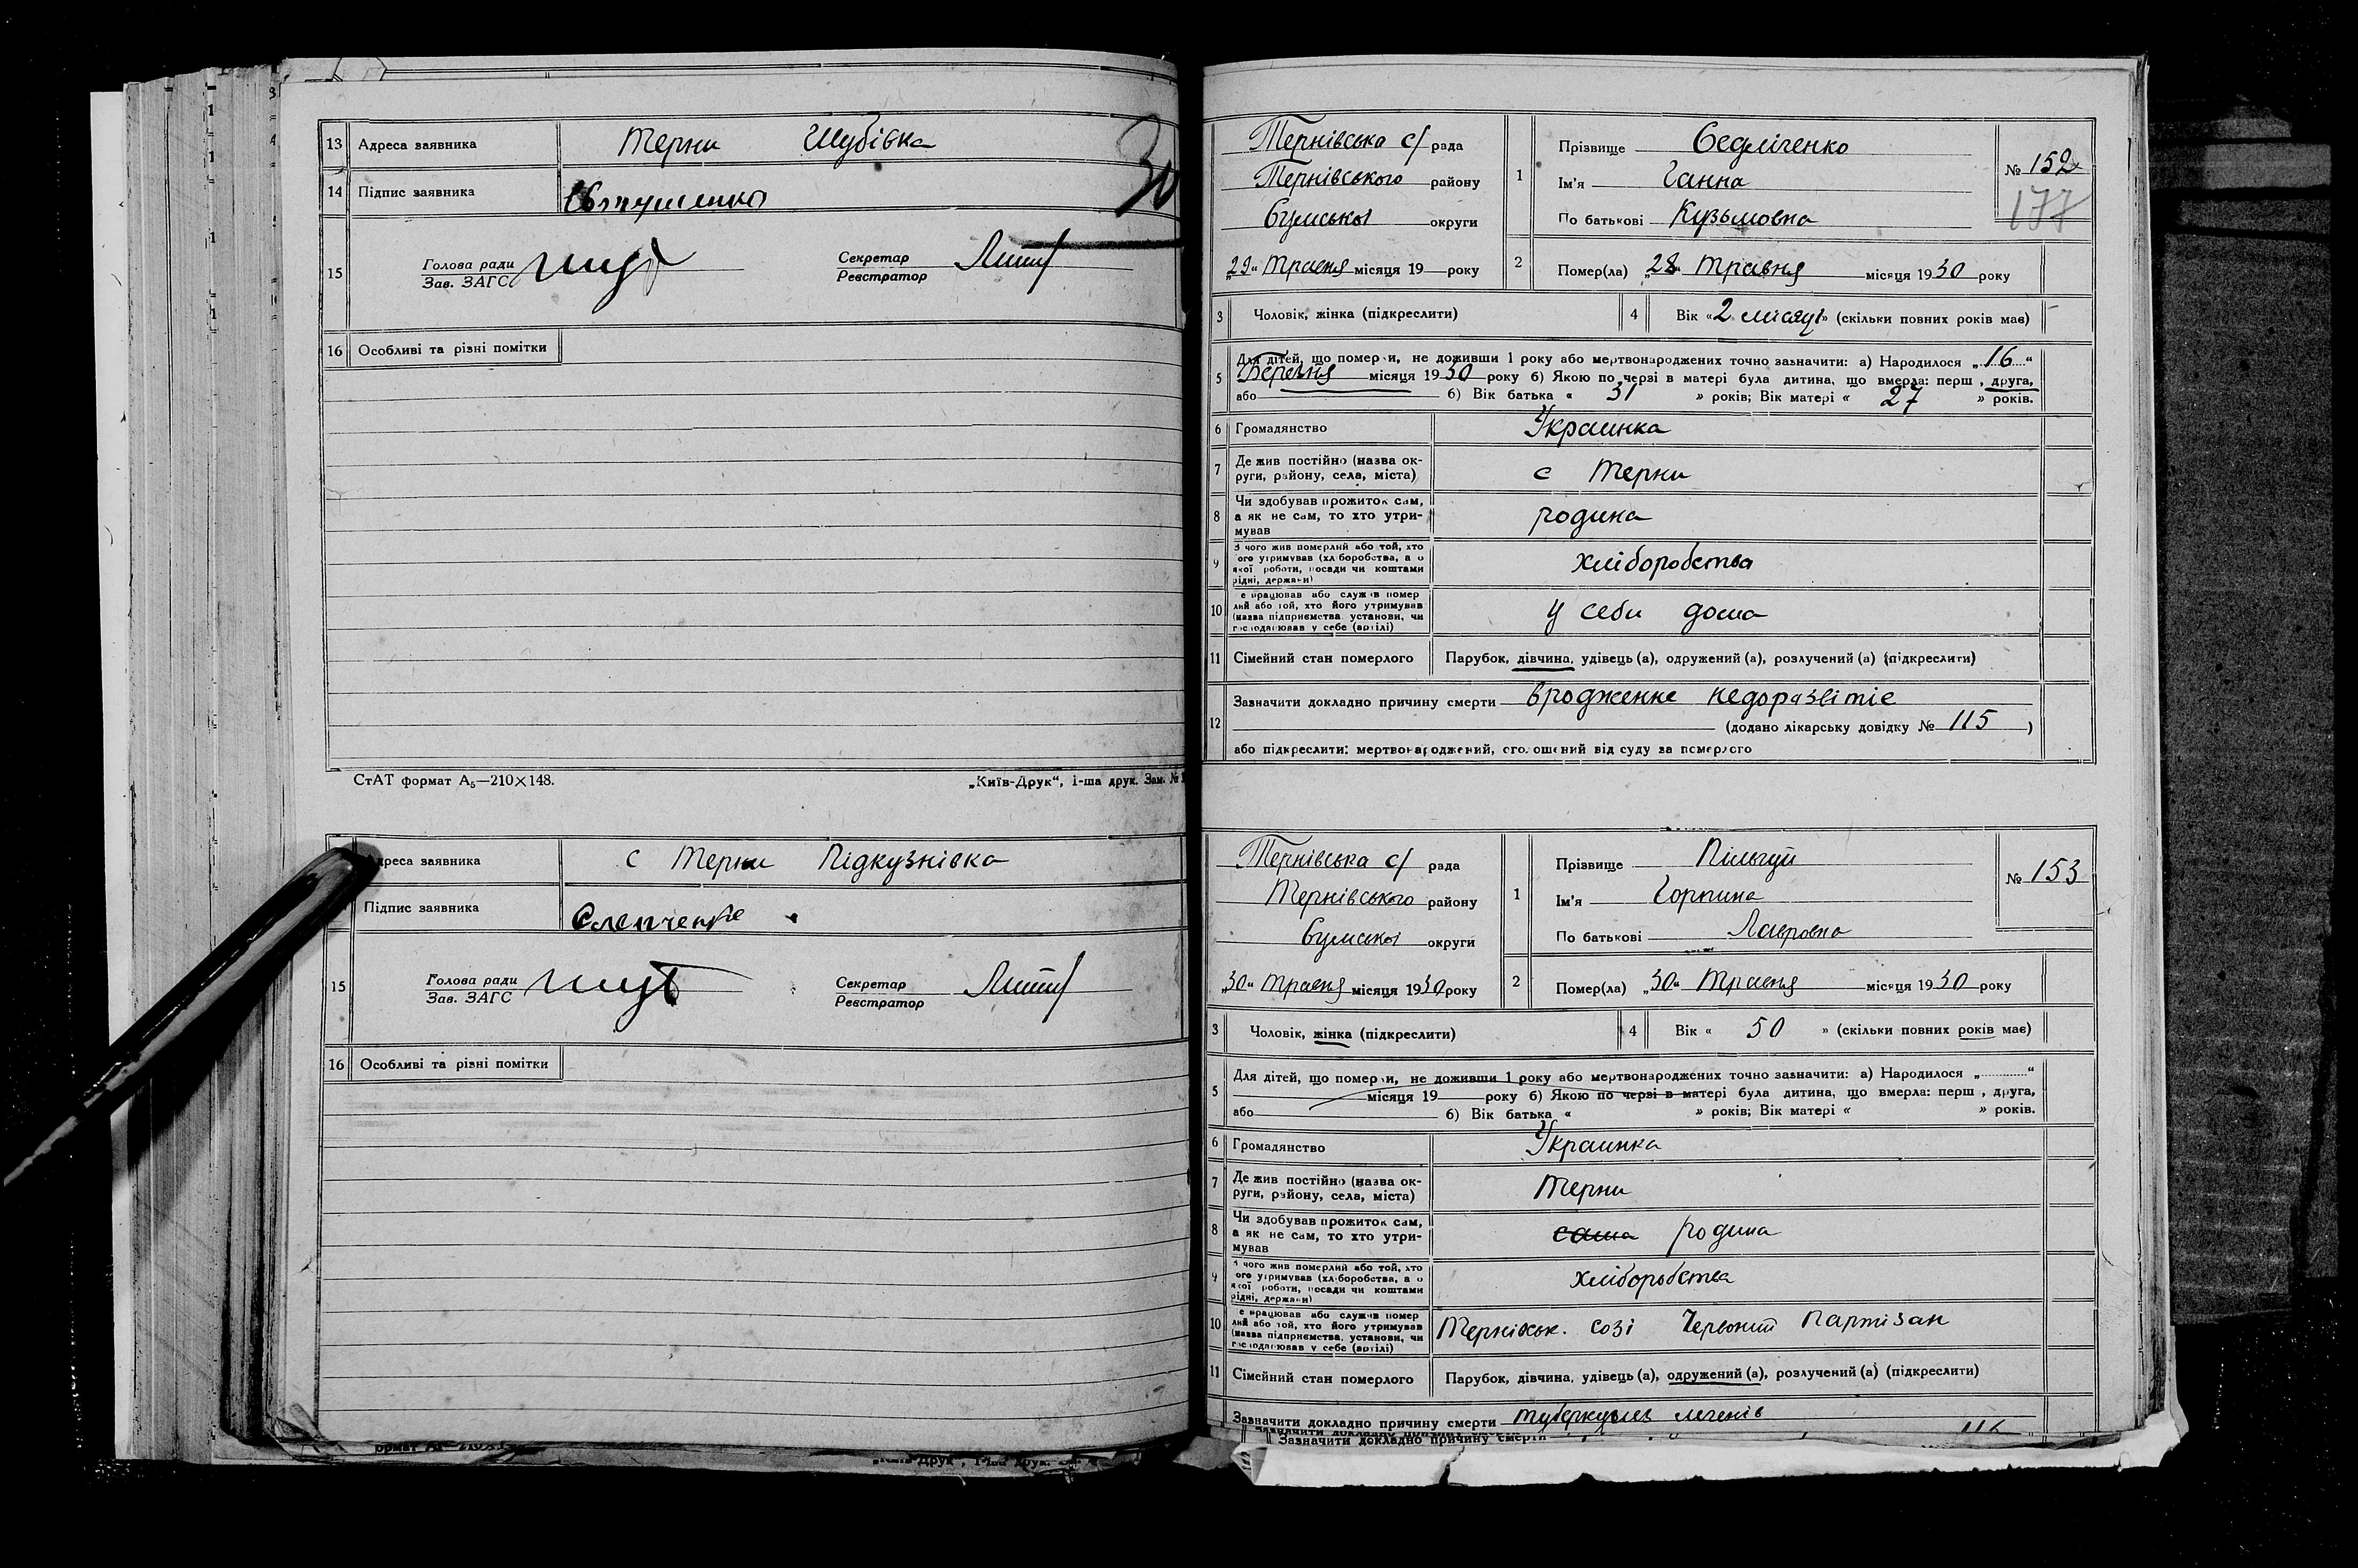 13 Адреса заявника Терни Шубівка
14 Підпис заявника Євтушенко
30
15 Голова ради Секретар
Зав. ЗАГС Реєстратор
16 Особливі та різні помітки
СтАТ формат А₅—210×148. „Київ-Друк“, 1-ша друк. Зам. №
Адреса заявника с Терни Підкузнівка
Підпис заявника
15 Голова ради Секретар
Зав. ЗАГС Реєстратор
16 Особливі та різні помітки
Тернівська с/ рада
Тернівського району
Сумської округи
„29“ травня місяця 19 року
1 Прізвище Седліченко
Ім'я Ганна
По батькові Кузьмовна
№ 152
177
2 Помер(ла) „28“ травня місяця 1930 року
3 Чоловік, жінка (підкреслити)
4 Вік «2 місяці» (скільки повних років має)
5 Для дітей, що померли, не доживши 1 року або мертвонароджених точно зазначити: а) Народилося „16“
Березня місяця 1930 року б) Якою по черзі в матері була дитина, що вмерла: перш , друга,
або б) Вік батька « 31 » років; Вік матері « 27 » років.
6 Громадянство Украинка
7 Де жив постійно (назва ок-
руги, району, села, міста) с Терни
8 Чи здобував прожиток сам,
а як не сам, то хто утри-
мував родина
9 З чого жив померлий або той, хто
ого утримував (хліборобства, а о
якої роботи, посади чи коштами
рідні, держави) хліборобства
10 е працював або служив помер
лий або той, хто його утримував
(назва підприємства установи, чи
господарював у себе (артілі) у себи дома
11 Сімейний стан померлого Парубок, дівчина, удівець (а), одружений (а), розлучений (а) (підкреслити)
12 Зазначити докладно причину смерти вродженне недоразвітіе
(додано лікарську довідку № 115 )
або підкреслити: мертвонароджений, оголошений від суду за померлого
Тернівська с/ рада
Тернівського району
Сумської округи
„30“ травня місяця 1930 року
1 Прізвище Пільгуй
Ім'я Горпина
По батькові Лавровна
№ 153
2 Помер(ла) „30“ травня місяця 1930 року
3 Чоловік, жінка (підкреслити)
4 Вік « 50 » (скільки повних років має)
5 Для дітей, що померли, не доживши 1 року або мертвонароджених точно зазначити: а) Народилося „ “
місяця 19 року б) Якою по черзі в матері була дитина, що вмерла: перш , друга,
або б) Вік батька « » років; Вік матері « » років.
6 Громадянство Украинка
7 Де жив постійно (назва ок-
руги, району, села, міста) Терни
8 Чи здобував прожиток сам,
а як не сам, то хто утри-
мував сама родина
9 З чого жив померлий або той, хто
ого утримував (хліборобства, а о
якої роботи, посади чи коштами
рідні, держави) хліборобства
10 е працював або служив помер
лий або той, хто його утримував
(назва підприємства, установи, чи
господарював у себе (артілі) Тернівськ. созі Червоний Партізан
11 Сімейний стан померлого Парубок, дівчина, удівець (а), одружений (а), розлучений (а) (підкреслити)
Зазначити докладно причину смерти туберкульз легенів
116
Зазначити докладно причину смерти